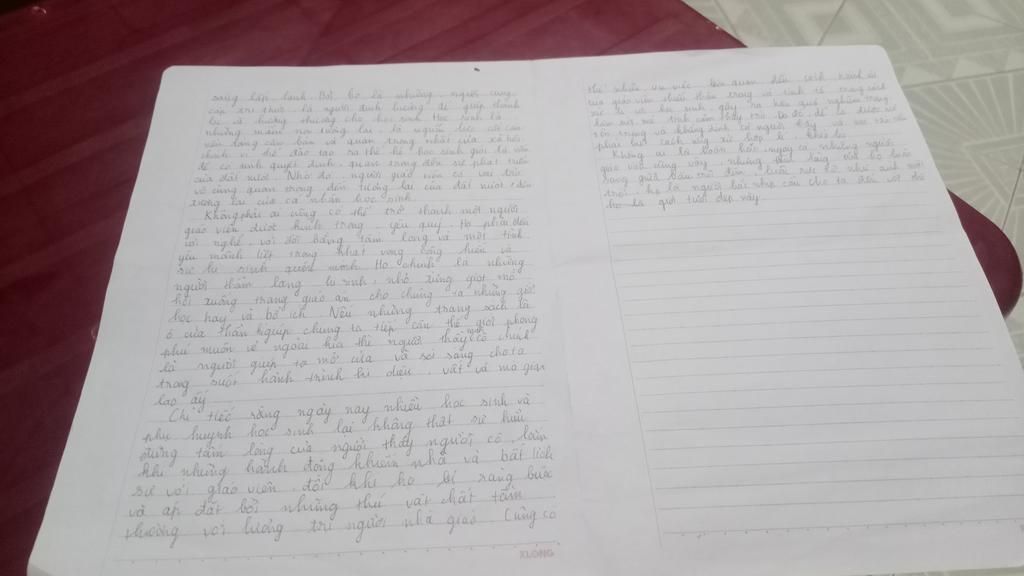 sáng lấp lánh. Bởi họ là những người cung
cấp tri thức, là người định hướng để giúp thành
là những thương cho học sinh. Học sinh là
những mầm non tương lai, là nguồn lực
nền tảng căn bản và quan trọng nhất của xã hội
chính vì thế đào tạo ra thế hệ học sinh giỏi là vấn
đề có tính quyết định, quan trọng đến sự phát triển
của đất nước. Nhờ đó, người giáo viên có vai trò
vô cùng quan trọng đến tương lai của đất nước, đến
tương lai của cá nhân học sinh.
Không phải ai cũng có thể trở thành một người
giáo viên được kính trọng, yêu quý. Họ phải đến
với nghề, với đời bằng tấm lòng và một tình
yêu mãnh liệt trong khát vọng cống hiến và
sự hi sinh quên mình. Họ chính là những
người thầm lặng hi sinh, nhỏ xuống giọt mồ
hôi xuống trang giáo án cho chúng ta những giờ
học hay và bổ ích. Nếu những trang sách là
ô cửa thần giúp chúng ta tiếp cận thế giới phong
phú muôn vẻ ngoài kia thì người thầy cô chính
là người giúp ta mở cửa và soi sáng cho ta
trong suốt hành trình kì diệu, vất vả mà gian
lao ấy.
Chỉ tiếc rằng ngày nay nhiều học sinh và
phụ huynh học sinh lại không thật sự hiểu
được tấm lòng của người thầy người cô, lắm
khi những hành động khiếm nhã và bất lịch
sự với giáo viên, đôi khi họ bị ràng buộc
và áp đặt bởi những thứ vật chất tầm
thường với lương tri người nhà giáo. Cũng có
thể nhiều vụ việc liên quan đến cách hành xử
của giáo viên thiếu thận trọng và tinh tế trong cách
xử lí với học sinh, gây ra hậu quả nghiêm trọng
tình cảm thầy trò. Do đó, để là được
tôn trọng và khẳng định có người thầy và
phải biết cách ứng xử hợp lí, khéo léo.
Không ai là hoàn hảo, ngay cả những người
giáo viên cũng vậy, nhưng tấm lòng của họ luôn
sáng giữa bầu trời đêm, luôn rực rỡ như ánh mặt
trời, họ là người bắt nhịp cầu cho ta đến với
thế giới tươi đẹp này.
KLONG